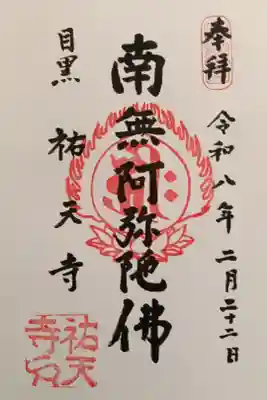 奉拝
令和八年二月二十二日
南無阿弥陀佛
目黒
祐天寺
祐天
寺印